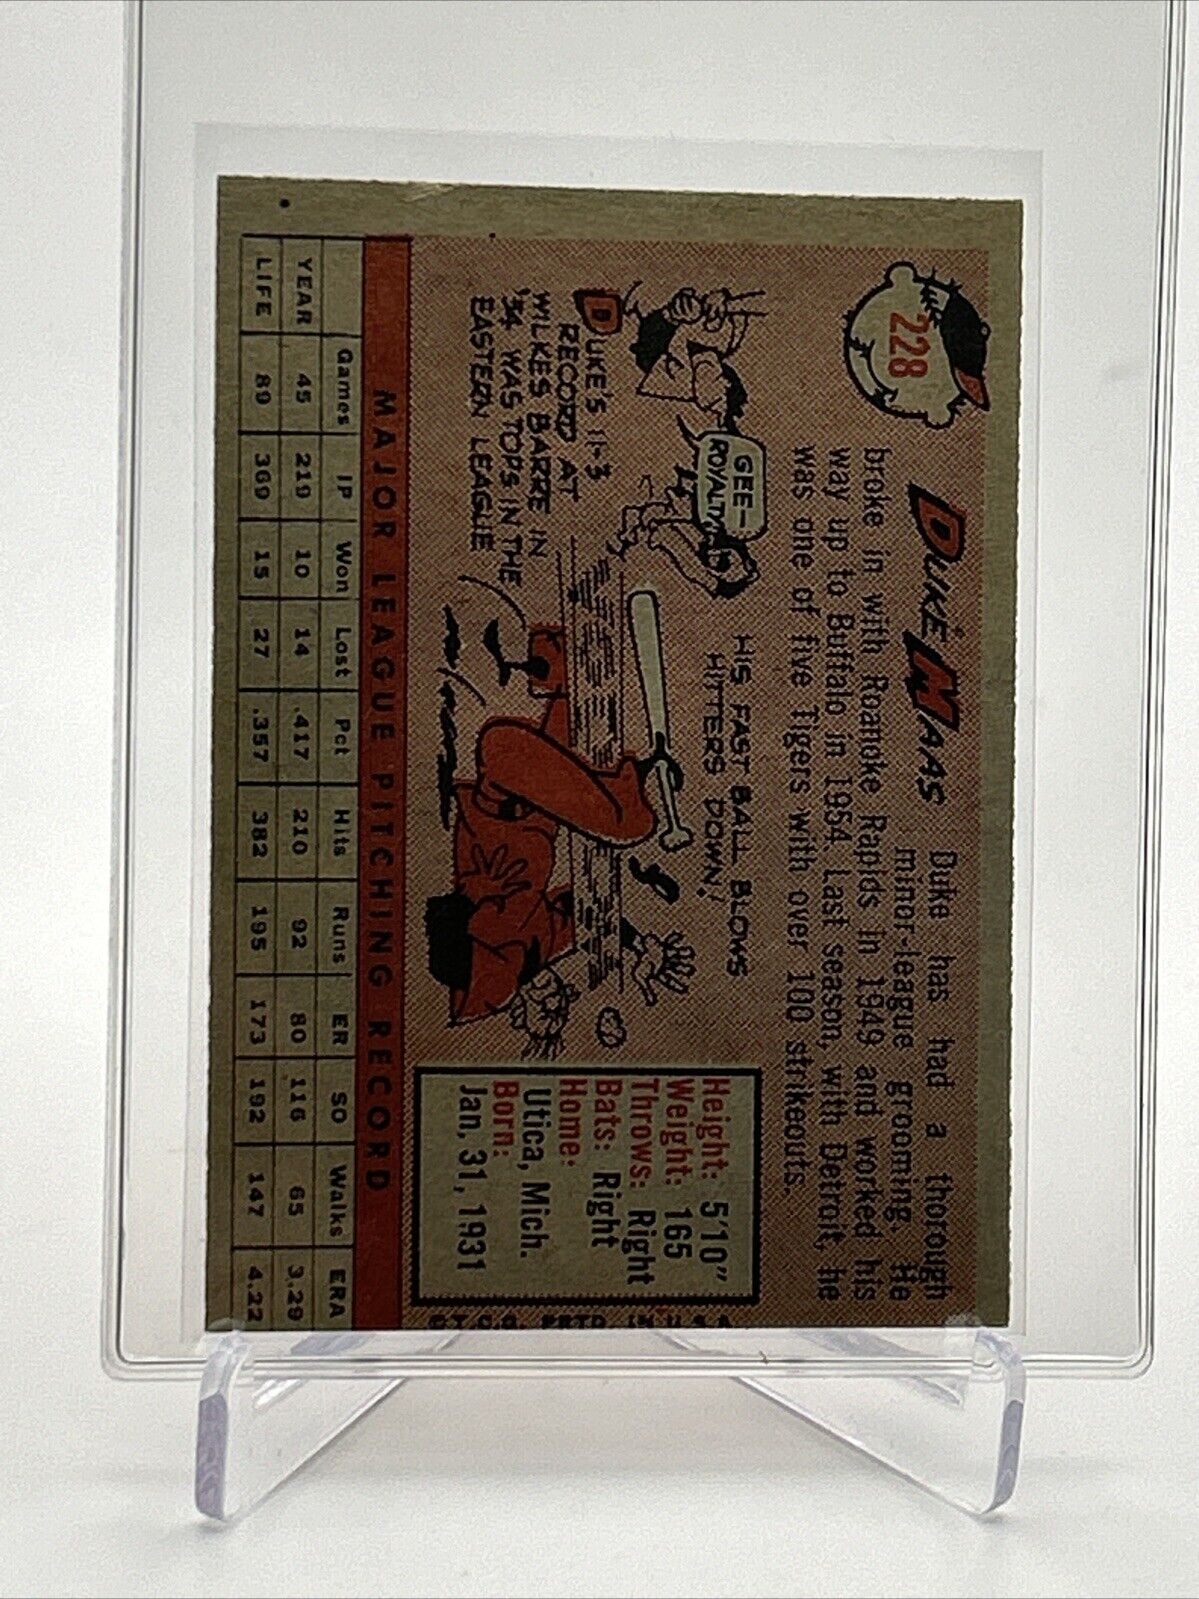 228
DUKE MAAS
Duke has had a thorough
minor-league grooming. He
broke in with Roanoke Rapids in 1949 and worked his
way up to Buffalo in 1954. Last season, with Detroit, he
was one of five Tigers with over 100 strikeouts.
GEE-
ROYALTY
HIS FAST BALL BLOWS
HITTERS DOWN!
DUKE'S 11-3
RECORD AT
WILKES BARRE IN
'54 WAS TOPS IN THE
EASTERN LEAGUE
Height: 5'10"
Weight: 165
Throws: Right
Bats: Right
Home:
Utica, Mich.
Born:
Jan. 31, 1931
MAJOR LEAGUE PITCHING RECORD
Games IP Won Lost Pct Hits Runs ER SO Walks ERA
YEAR 45 219 10 14 .417 210 92 80 116 65 3.29
LIFE 89 369 15 27 .357 382 195 173 192 147 4.22